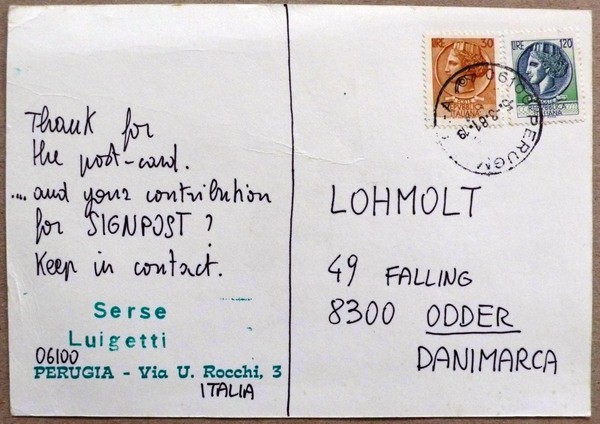 Thank for
the post-card.
.... and your contribution
for SIGNPOST ?
Keep in contact.
Serse
Luigetti
06100
PERUGIA - Via U. Rocchi, 3
ITALIA
LIRE 50
REPUBBLICA
ITALIANA
LIRE 120
REPUBBLICA
ITALIANA
06100 PERUGIA
5.3.81.19
LOHMOLT
49 FALLING
8300 ODDER
DANIMARCA